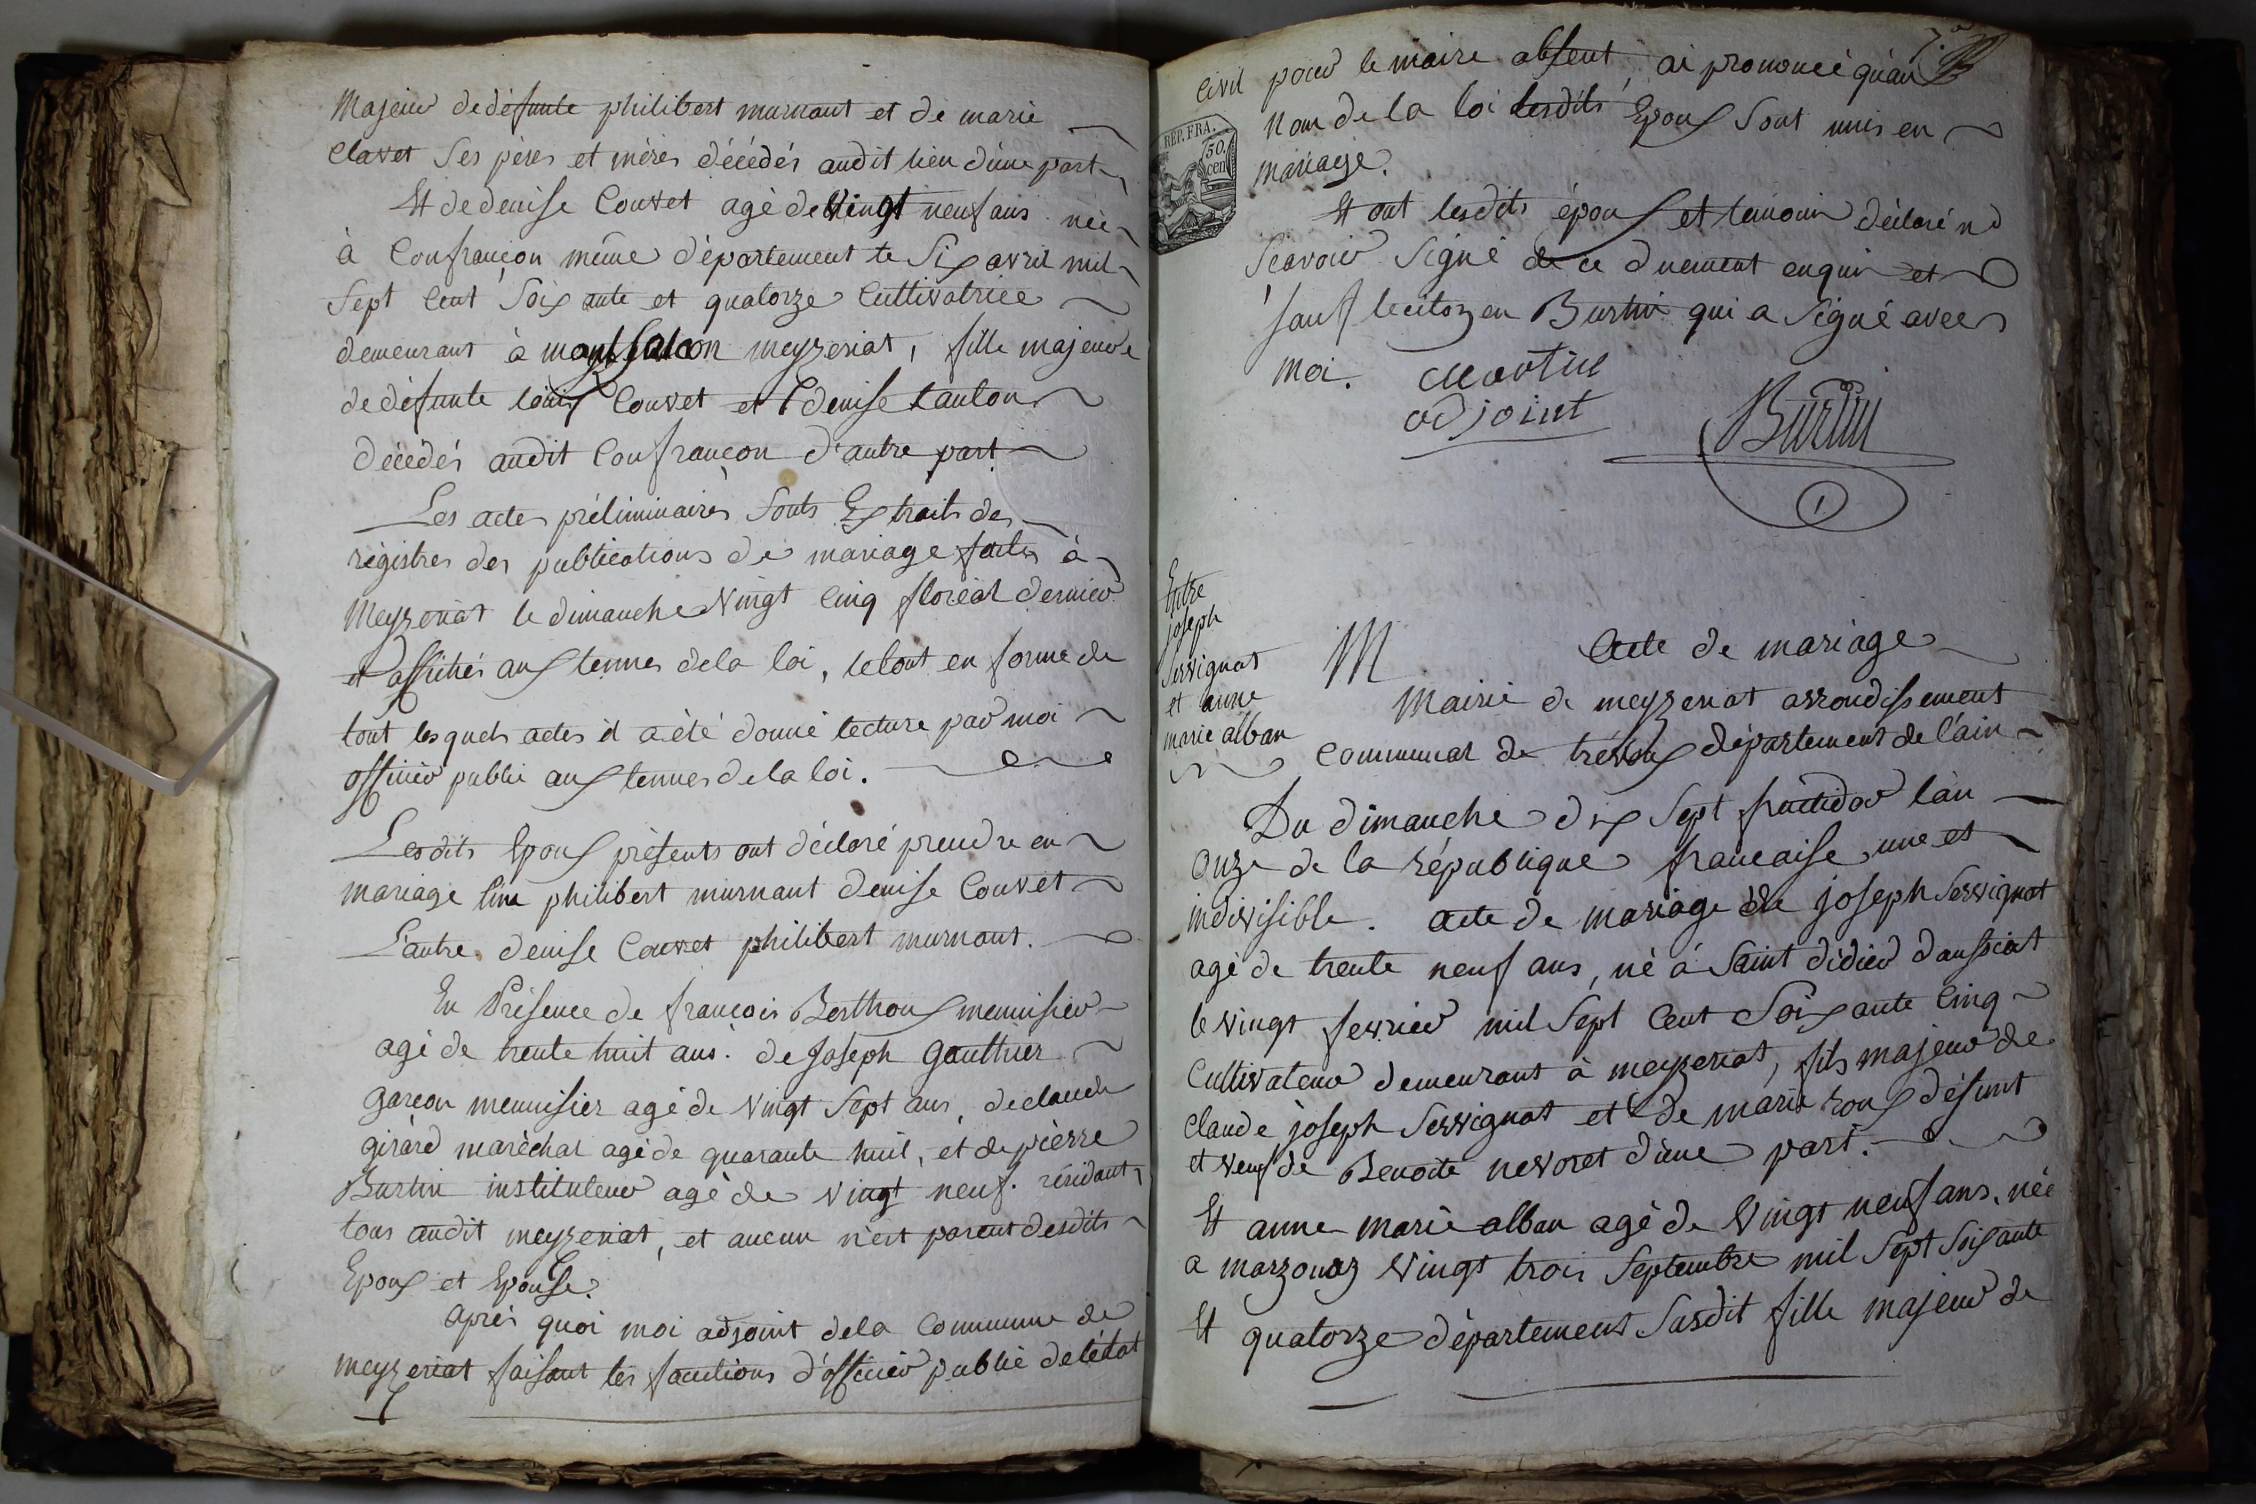 Majeur de défunte philibert murnant et de marie
Clavet Ses pères et mères décédés audit lieu d'une part
Et de denise Couvet agé de Vingt neuf ans née
à Confrançon même département le Six avril mil
Sept Cent Soixante et quatorze Cultivatrice
demeurant à montfalcon meyzeriat, fille majeure
de défunte louis Couvet et denise tanton
décédés audit Confrançon d'autre part
Les actes préliminaires Sonts Extraits des
régistres des publications de mariage faites à
Meyzeriat le dimanche Vingt Cinq floréal dernier
et affichés aux termes de la loi, le tout en forme de
tout lesquels actes il a été donné lecture par moi
officier public aux termes de la loi.
Lesdits Epoux présents ont déclaré prendre en
mariage l'un philibert murnant denise Couvet
L'autre denise Couvet philibert murnant.
En Présence de françois Berthoux menuisier
agé de trente huit ans. de Joseph Gauthier
garçon menuisier agé de Vingt Sept ans, de claude
girård maréchal agé de quarante huit, et de pièrre
Burtin instituteur agé de Vingt neuf. résidants
tous audit meyzeriat, et aucun n'est parent desdits
Epoux et Epouse.
après quoi moi adjoint de la Commune de
meyzeriat faisant les fonctions d'officier public de l'état
7.e
Civil pour le maire absent, ai prononcé qu'au
Nom de la loi lesdits Epoux Sont unis en
mariage.
REP. FRA.
50
cen
Et ont lesdits époux et temoins déclaré ne
Scavoir Signé de ce duement enquis et
Sauf le citoyen Burtin qui a Signé avec
moi. Martin
adjoint
Burtin
Entre
joseph
Servignat
et anne
marie alban
M
Acte de mariage
Mairie de meyzeriat arrondissement
Communal de trévoux département de l'ain
Du dimanche dix Sept fructidor l'an
Onze de la république francaise une et
indivisible. acte de mariage de joseph Servignat
agé de trente neuf ans, né à Saint didier d'aussiat
le Vingt fevrier mil Sept Cent Soixante Cinq
Cultivateur demeurant à meyzeriat, fils majeur de
claude joseph Servignat et de marie roux défunt
et Veuf de Benoite nevoret d'une part.
Et anne marie alban agé de Vingt neuf ans, née
a marzonaz Vingt trois Septembre mil Sept Soixante
Et quatorze département Susdit fille majeur de